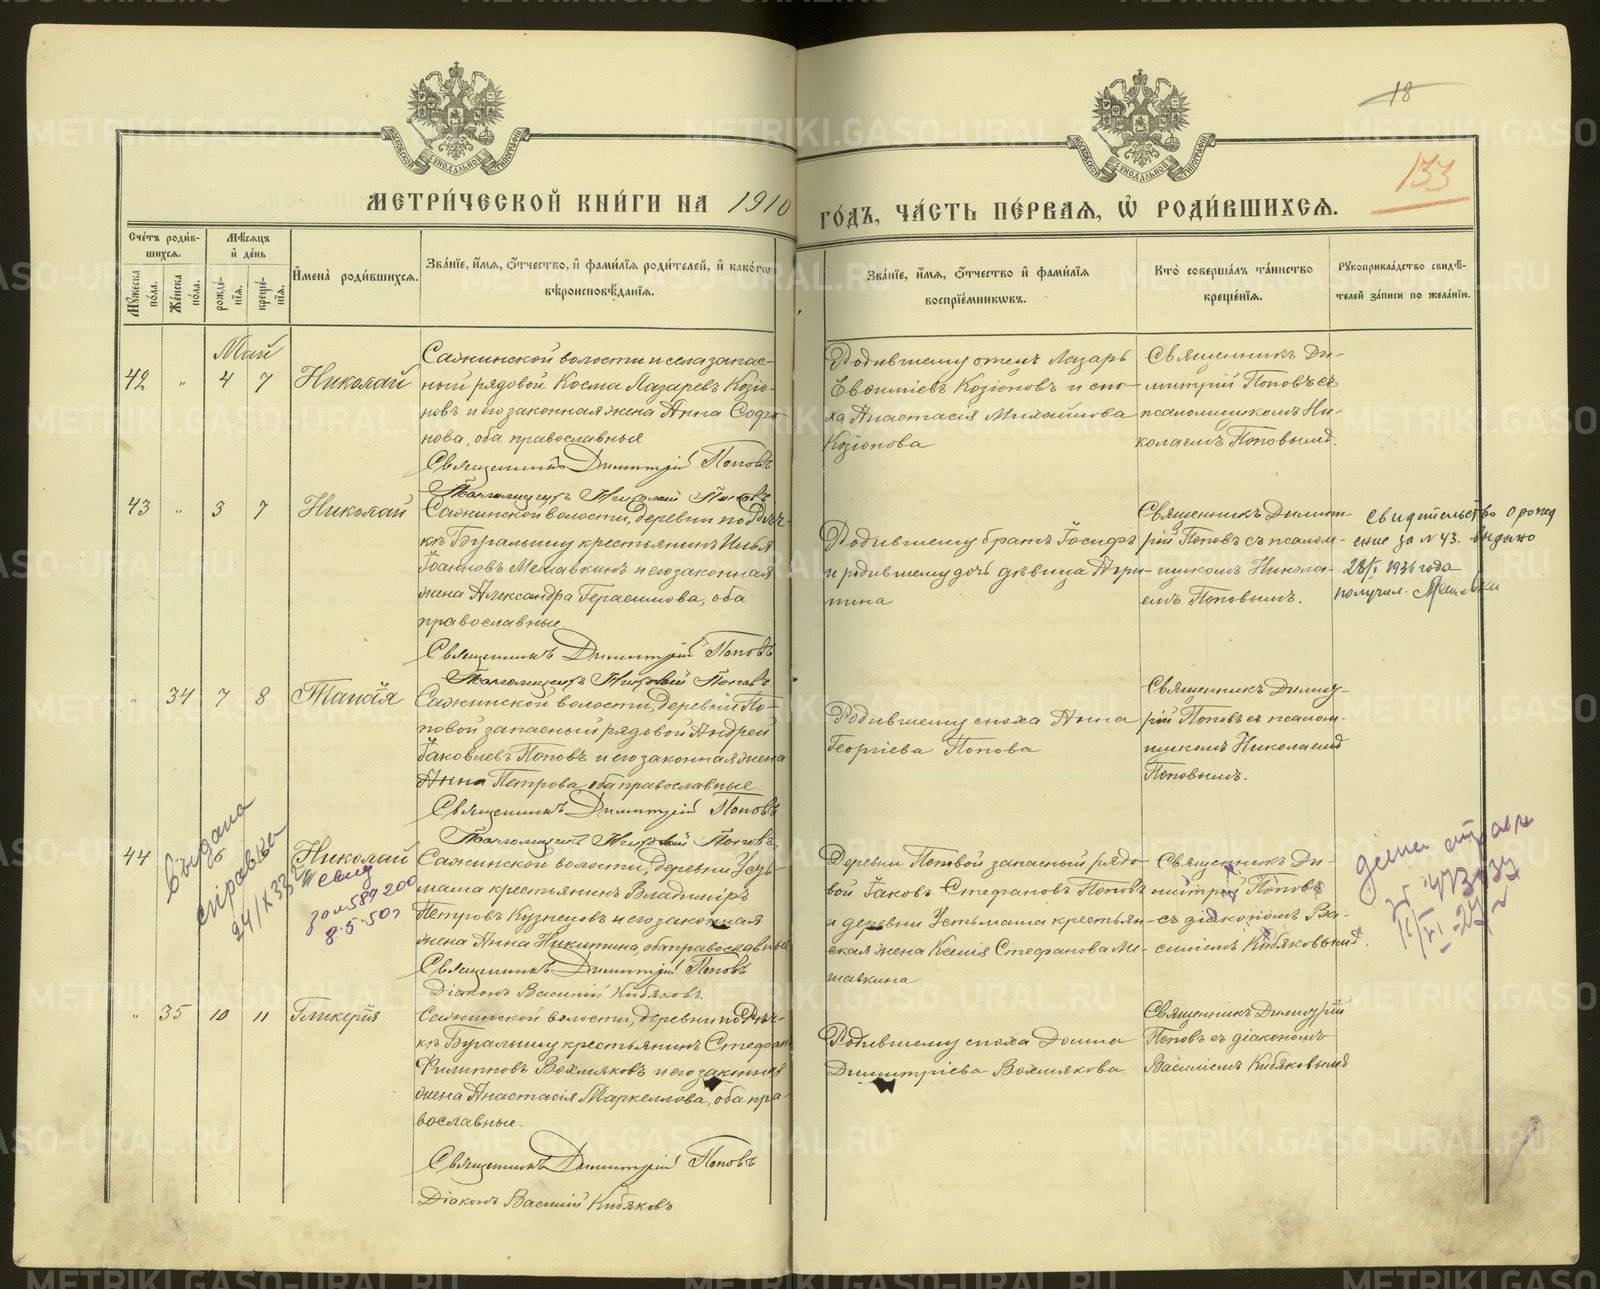 18
133
МОСКОВСКОЙ СѴНОДАЛЬНОЙ ТИПОГРАФІИ
МОСКОВСКОЙ СѴНОДАЛЬНОЙ ТИПОГРАФІИ
МЕТРИ́ЧЕСКОЙ КНИ́ГИ НА 1910
ГО́ДЪ, ЧА́СТЬ ПЕ́РВАЯ, Ѡ҆ РОДИ́ВШИХСЯ.
Сче́тъ роди́в-
шихся.
Мꙋ́жеска по́ла.
Же́нска по́ла.
Мѣ́сяцъ
и҆ де́нь
рожде́нїя.
креще́нїя.
И҆мена̀ роди́вшихся.
Зва́нїе, и҆́мя, ѻ҆́тчество, и҆ фами́лїя роди́телей, и҆ како́гѡ
вѣроисповѣ́данїя.
Зва́нїе, и҆́мя, ѻ҆́тчество и҆ фами́лїя
воспрїе́мникѡвъ.
Кто̀ соверша́лъ та́инство
креще́нїя.
Рꙋкоприкла́дство свидѣ́-
телей за́писи по жела́нїю.
Май
42 " 4 7 Николай
Сажинской волости и села запас-
ный рядовой Косма Лазаревъ Козіо-
новъ и его законная жена Анна Софро-
нова, оба православные
Священникъ Димитрій Поповъ
Псаломщикъ Николай Поповъ
Родившему отецъ Лазарь
Евѳиміевъ Козіоновъ и сно-
ха Анастасія Михайлова
Козіонова
Священникъ Ди-
митрій Поповъ съ
псаломщикомъ Ни-
колаемъ Поповымъ.
43 " 3 7 Николай
Сажинской волости, деревни по рѣч-
кѣ Бугалышу крестьянинъ Илья
Іоанновъ Мешавкинъ и его законная
жена Александра Герасимова, оба
православные
Священникъ Димитрій Поповъ
Псаломщикъ Николай Поповъ
Родившему братъ Іосифъ
и родившему дочь дѣвица Ири-
нина
Священникъ Димит-
рій Поповъ съ псалом-
щикомъ Никола-
емъ Поповымъ.
Свидетельство о рожд
ение за № 43. выдано
28/I 1936 года
получил.
" 34 7 8 Таисія
Сажинской волости, деревни По-
повой запасный рядовой Андрей
Іаковлевъ Поповъ и его законная жена
Анна Петрова, оба православные.
Священникъ Димитрій Поповъ
Псаломщикъ Николай Поповъ
Родившему сноха Анна
Георгіева Попова
Священникъ Димит-
рій Поповъ съ псалом-
щикомъ Николаемъ
Поповымъ.
44 Николай
Выдана
справка
24/IX 33
Свид
за № 589200
8.5.50г
Сажинской волости, деревни Усть-
маша крестьянинъ Владиміръ
Петровъ Кузнецовъ и его законная
жена Анна Никитина, оба православные
Священникъ Димитрій Поповъ
Діаконъ Василій Кибяковъ.
Деревни Поповой запасный рядо-
вой Іаковъ Стефановъ Поповъ
и деревни Устьмаша крестьян-
ская жена Ксенія Стефанова Ме-
шавкина
Священникъ Ди-
митрій Поповъ
съ діакономъ Ва-
силіемъ Кибяковымъ.
" 35 10 11 Гликерія
Сажинской волости, деревни по рѣч-
кѣ Бугалышу крестьянинъ Стефан
Филипповъ Вохмяковъ и его законная
жена Анастасія Маркеллова, оба пра-
вославные.
Священникъ Димитрій Поповъ
Діаконъ Василій Кибяковъ
Родившему сноха Домна
Димитріева Вохмякова
Священникъ Димитрій
Поповъ съ діакономъ
Василіемъ Кибяковымъ
METRIKI.GASO-URAL.RU